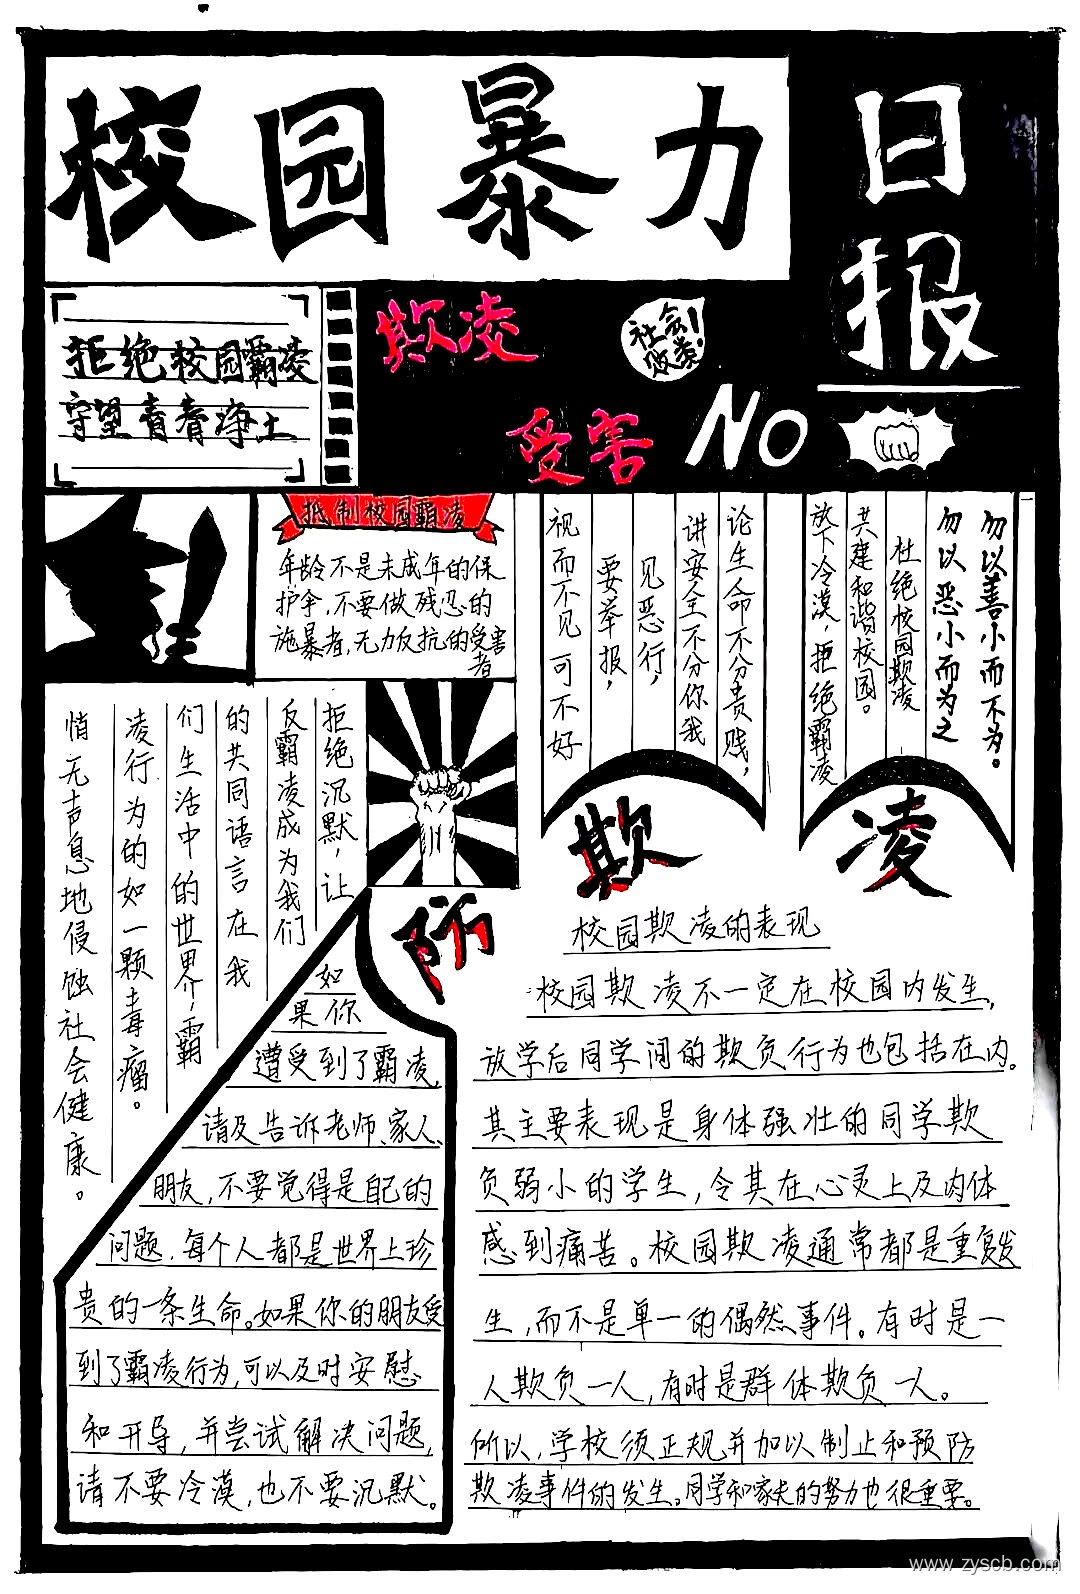 校园暴力
日报
拒绝校园霸凌
守望青青净土
欺凌
社会
败类!
受害
NO
抵制校园霸凌
年龄不是未成年的保
护伞，不要做残忍的
施暴者，无力反抗的受害
者
论生命不分贵贱，
讲安全不分你我
见恶行，
要举报，
视而不见可不好
勿以善小而不为。
勿以恶小而为之
杜绝校园欺凌
共建和谐校园。
放下冷漠，拒绝霸凌
拒绝沉默，让
反霸凌成为我们
的共同语言在我
们生活中的世界，霸
凌行为的如一颗毒瘤。
悄无声息地侵蚀社会健康。
防
欺
凌
如
果你
遭受到了霸凌，
请及告诉老师、家人、
朋友，不要觉得是自己的
问题，每个人都是世界上珍
贵的一条生命。如果你的朋友受
到了霸凌行为，可以及时安慰
和开导，并尝试解决问题，
请不要冷漠，也不要沉默。
校园欺凌的表现
校园欺凌不一定在校园内发生，
放学后同学间的欺负行为也包括在内。
其主要表现是身体强壮的同学欺
负弱小的学生，令其在心灵上及肉体
感到痛苦。校园欺凌通常都是重复发
生，而不是单一的偶然事件。有时是一
人欺负一人，有时是群体欺负一人。
所以，学校须正规并加以制止和预防
欺凌事件的发生。同学和家长的努力也很重要。
www.zyscb.com